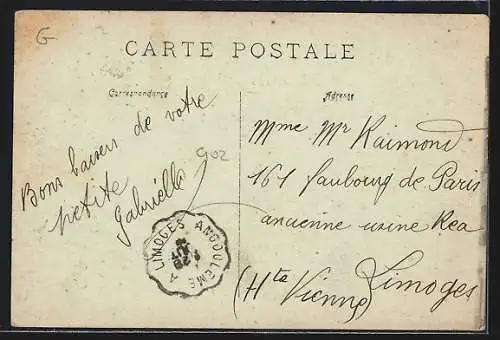 G
CARTE POSTALE
Correspondance
Adresse
Bons baisers de votre
petite
Gabrielle
902
Mme Mr Raimond
161 faubourg de Paris
ancienne usine Rea
Limoges
(Hte Vienne)
LIMOGES A ANGOULEME
28